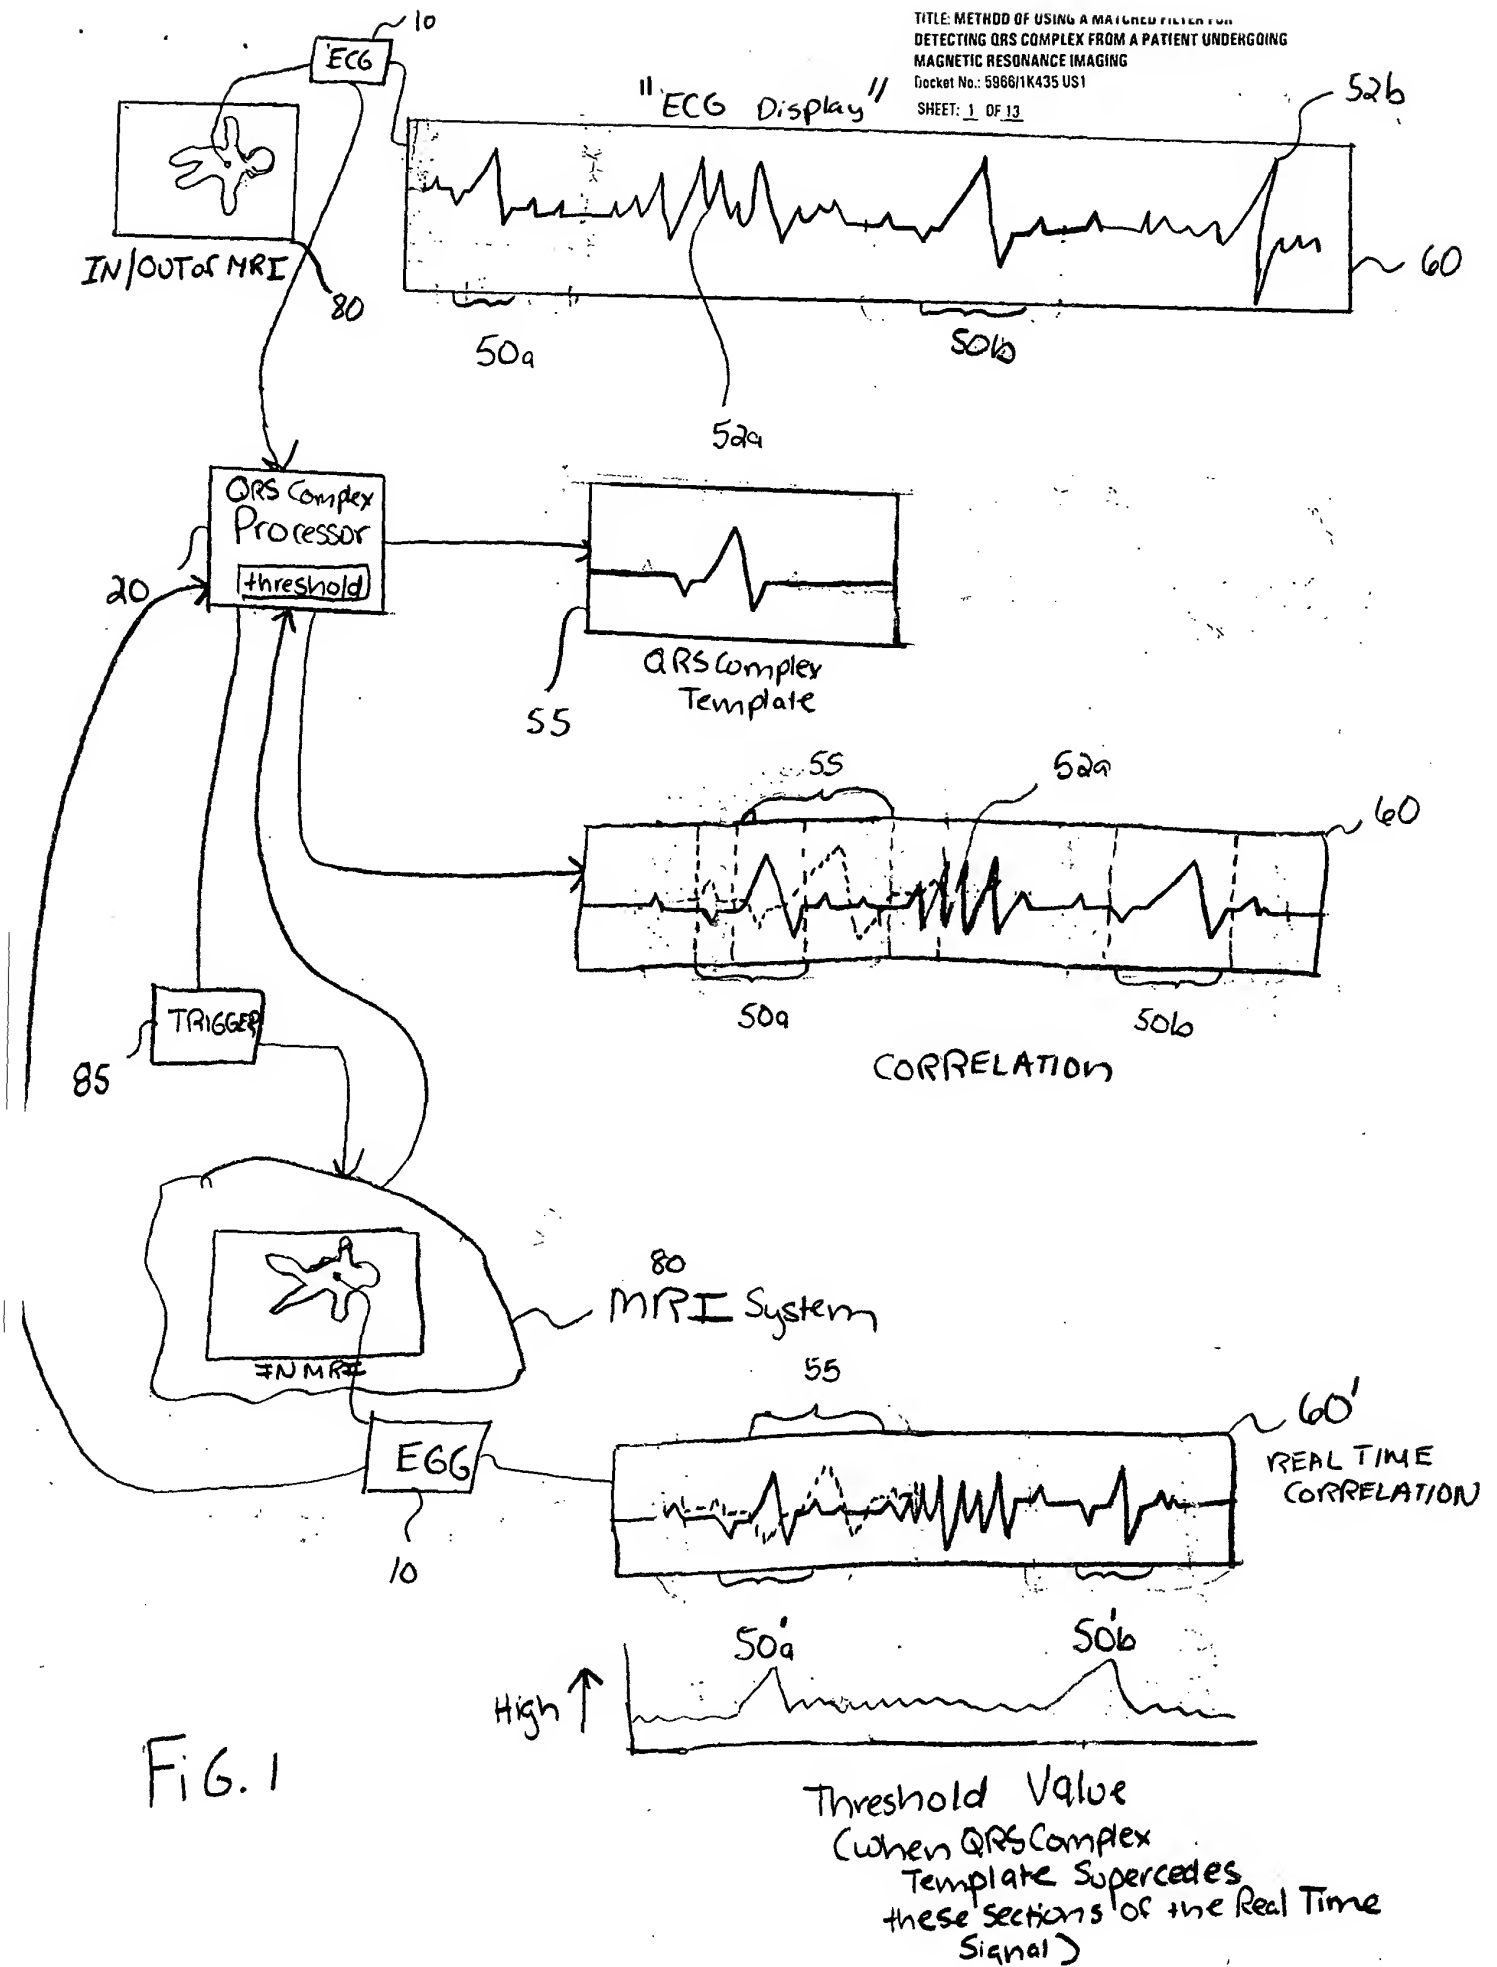 10
TITLE: METHOD OF USING A MATCHED FILTER FOR
DETECTING QRS COMPLEX FROM A PATIENT UNDERGOING
MAGNETIC RESONANCE IMAGING
Docket No.: 5966/1K435 US1
SHEET: 1 OF 13
ECG
"ECG Display"
52b
IN/OUT OF MRI
80
60
50a
50b
52a
QRS Complex
Processor
threshold
20
QRS Complex
Template
55
55
52a
60
50a
50b
CORRELATION
TRIGGER
85
80
MRI System
IN MRI
55
60'
REAL TIME
CORRELATION
EGG
10
50'a
50'b
High
FIG. 1
Threshold Value
(when QRS Complex
Template Supercedes
these sections of the Real Time
Signal)